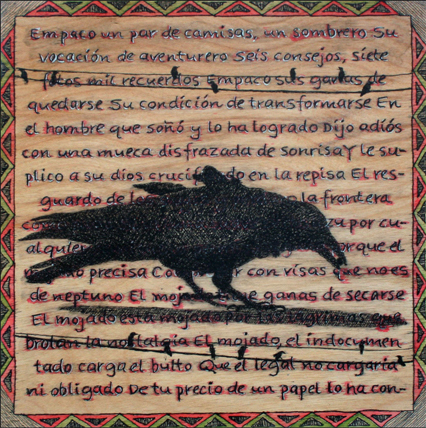 Empaco un par de camisas, un sombrero Su
vocación de aventurero Seis consejos, siete
fotos mil recuerdos Empaco sus ganas de
quedarse Su condición de transformarse En
el hombre que soñó y lo ha logrado Dijo adiós
con una mueca disfrazada de sonrisa Y le su-
plico a su dios crucificado en la repisa El res-
guardo de la frontera
por cu-
alquier que el
precisa Co con visas que no es
de neptuno El mojado tiene ganas de secarse
El mojado está mojado Por las lagrimas que
brotan la nostalgia El mojado, el indocumen
tado carga el bulto Que el legal no cargaria
ni obligado De tu precio de un papel lo ha con-